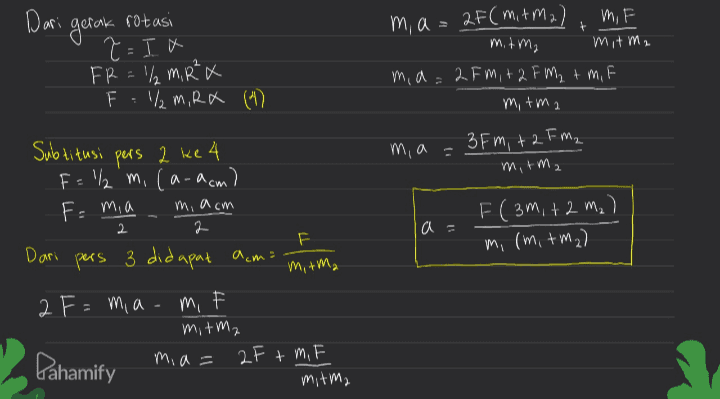 Dari gerak rotasi
τ = I α
FR = 1/2 m₁R² α
F = 1/2 m₁R α (4)
Subtitusi pers 2 ke 4
F = 1/2 m₁ (a - acm)
F = m₁a/2 - m₁acm/2
Dari pers 3 didapat acm = F/(m₁+m₂)
2F = m₁a - m₁F/(m₁+m₂)
m₁a = 2F + m₁F/(m₁+m₂)
Pahamify
m₁a = 2F(m₁+m₂)/(m₁+m₂) + m₁F/(m₁+m₂)
m₁a = (2Fm₁ + 2Fm₂ + m₁F)/(m₁+m₂)
m₁a = (3Fm₁ + 2Fm₂)/(m₁+m₂)
a = F(3m₁+2m₂)/(m₁(m₁+m₂))